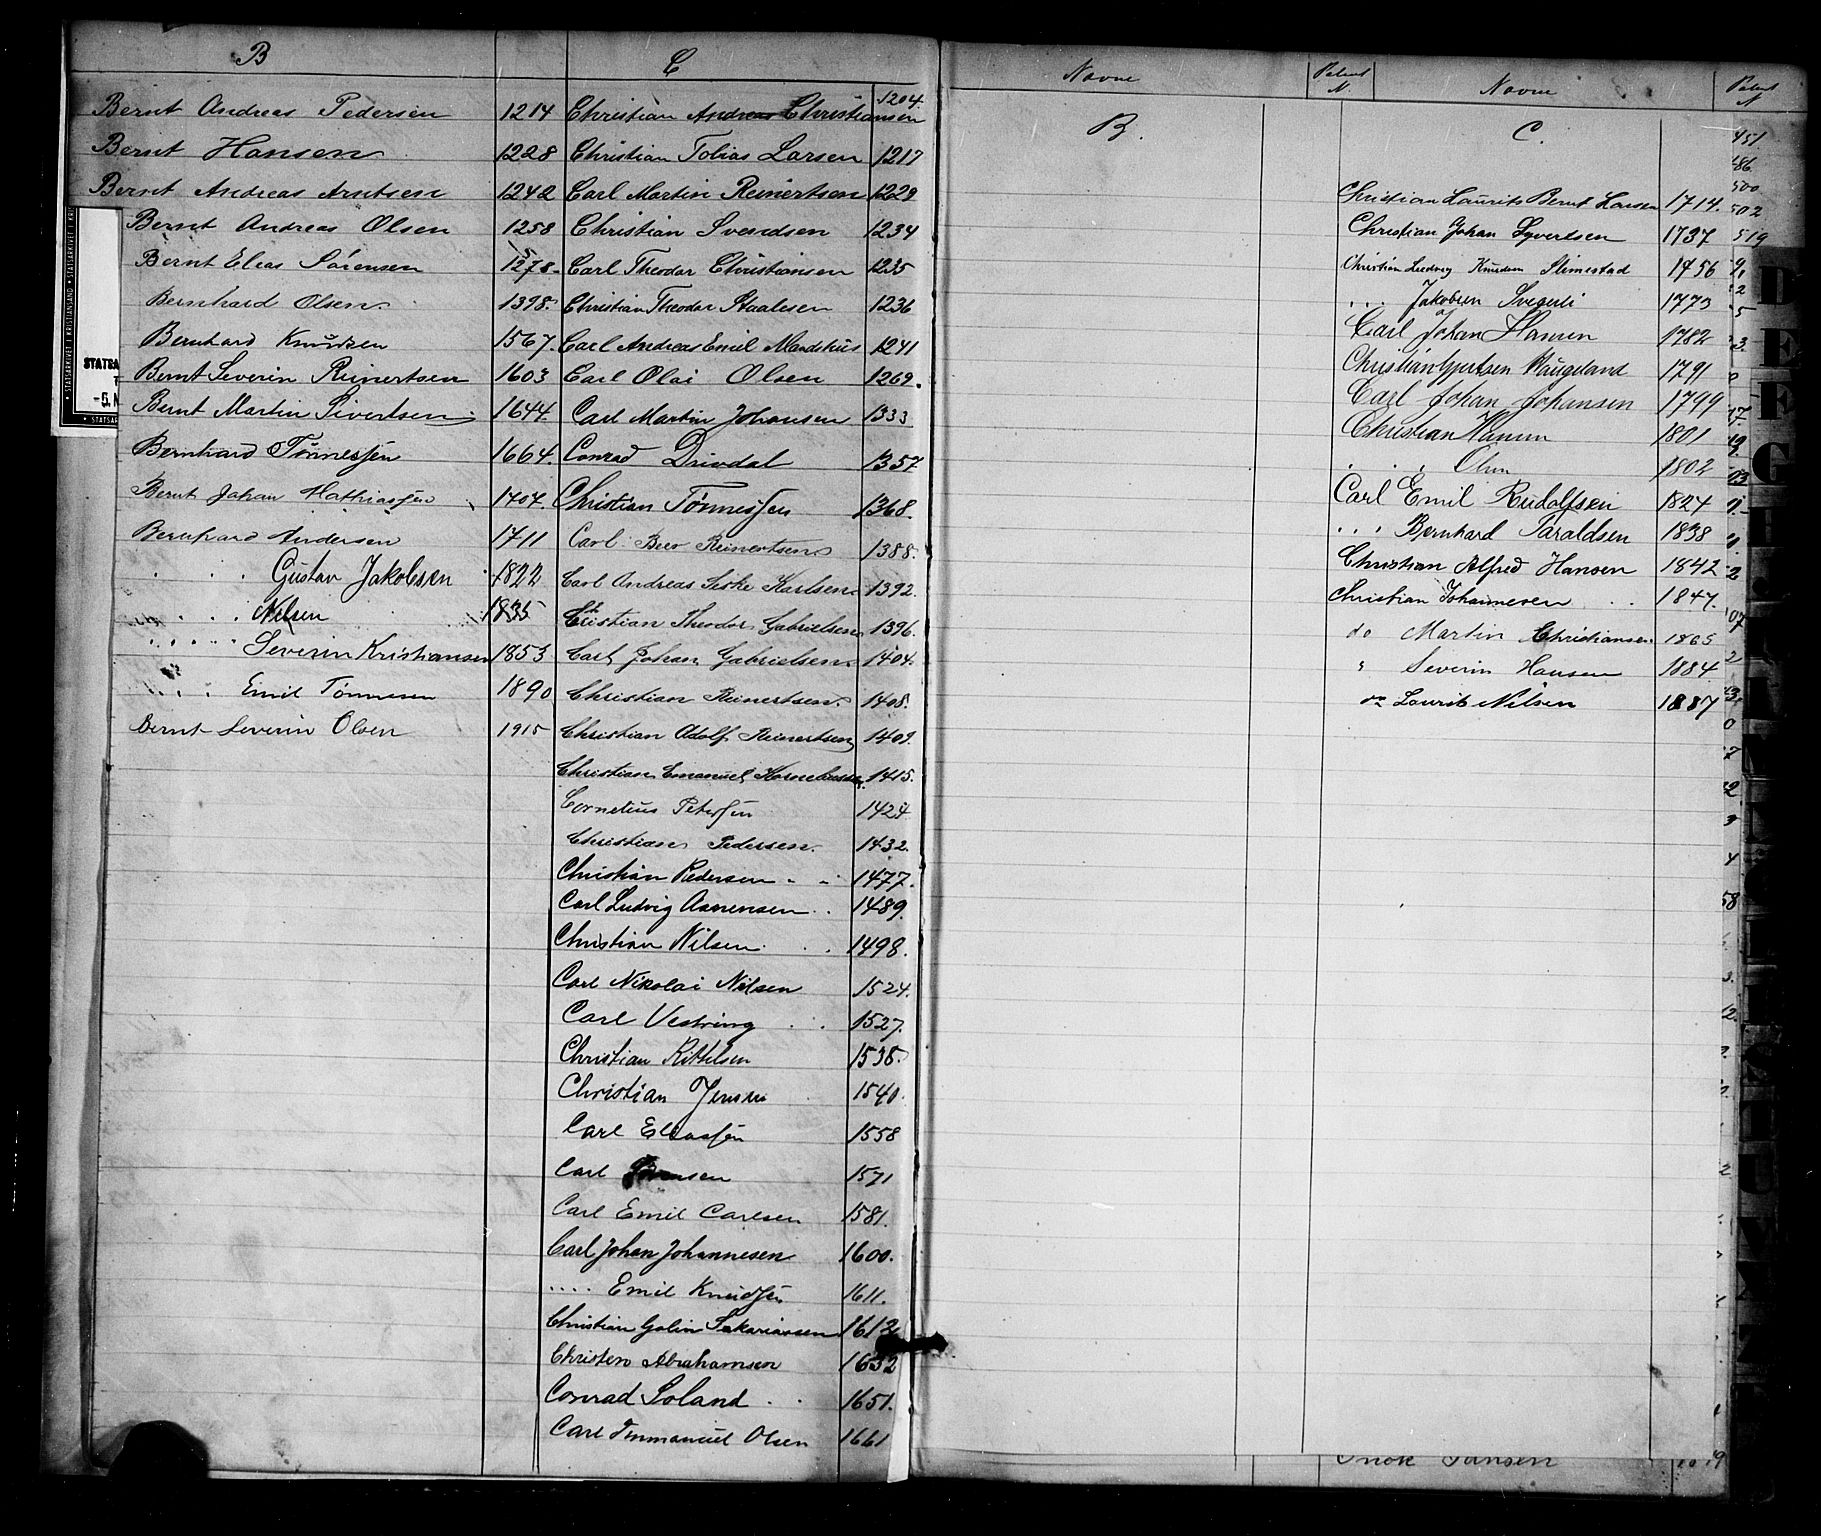 B
Bernt Andreas Pedersen 1214
Bernt Hansen 1228
Bernt Andreas Arntsen 1242
Bernt Andreas Olsen 1258
Bernt Elias Sørensen 1278.
Bernhard Olsen 1398.
Bernhard Knudsen 1567.
Bernt Severin Reinertsen 1603
Bernt Martin Sivertsen 1644
Bernhard Tønnessen 1664.
Bernt Johan Mathiassen 1707.
Bernhard Andersen 1711
. . . Gustav Jakobsen 1822
. . . Nilsen 1835
. . . . . Severin Kristiansen 1853
. . . Emil Tønnesen 1890
Bernt Severin Olsen 1915
C
Christian Andreas Christiansen 1204.
Christian Tobias Larsen 1217
Carl Martin Reinertsen 1229
Christian Svendsen 1234
Carl Theodor Christiansen 1235
Christian Theodor Staalesen 1236
Carl Andreas Emil 1241
Carl Olai Olsen 1269.
Carl Martin Johansen 1333
Conrad Drivdal 1357
Christian Tønnessen 1368.
Carl Reinertsen 1388.
Carl Andreas Karlsen 1392.
Christian Theodor Gabrielsen 1396.
Carl Johan Gabrielsen 1404.
Christian Reinertsen. 1408.
Christian Adolf Reinertsen 1409.
Christian Emanuel Korneliussen 1415.
Cornelius Petersen 1424
Christian Pedersen. 1432.
Christian Pedersen 1477.
Carl Ludvig Asmensen . . 1489.
Christian Nilsen . . 1498.
Carl Nikolai Nilsen 1524.
Carl Vestring . . 1527.
Christian Kittelsen 1538.
Christian Jensen 1540.
Carl Eliassen 1558
Carl 1571
Carl Emil Carlsen 1581.
Carl Johan Johannesen 1600.
. . . . Emil Knudsen 1611.
Christian Golin Sakariassen 1612
Christen Abrahamsen 1632
Conrad Soland . . 1651.
Carl Immanuel Olsen 1661
Navne Patent N Navne Patent N
B. C.
Christian Laurits Bernt Larsen 1714.
Christian Johan Syvertsen 1737
Christian Ludvig Knudsen Slimestad 1756
. . . Jakobsen Svegeli 1773
Carl Johan Hansen 1782
Christian Gjertsen Haugeland 1791
Carl Johan Johansen 1799
Christian Hansen 1801
. . . Olsen 1802
Carl Emil Rudolfsen 1824
. . . Bernhard Taraldsen 1838
Christian Alfred Hansen 1842
Christian Johannesen . . 1847.
do Martin Christiansen 1865
" Severin Hansen 1884
do Laurits Nilsen 1887
451
486.
500
502
519
58
D
E
F
G
STATSARKIVET I KRISTIANSAND
STATSA
-5. N